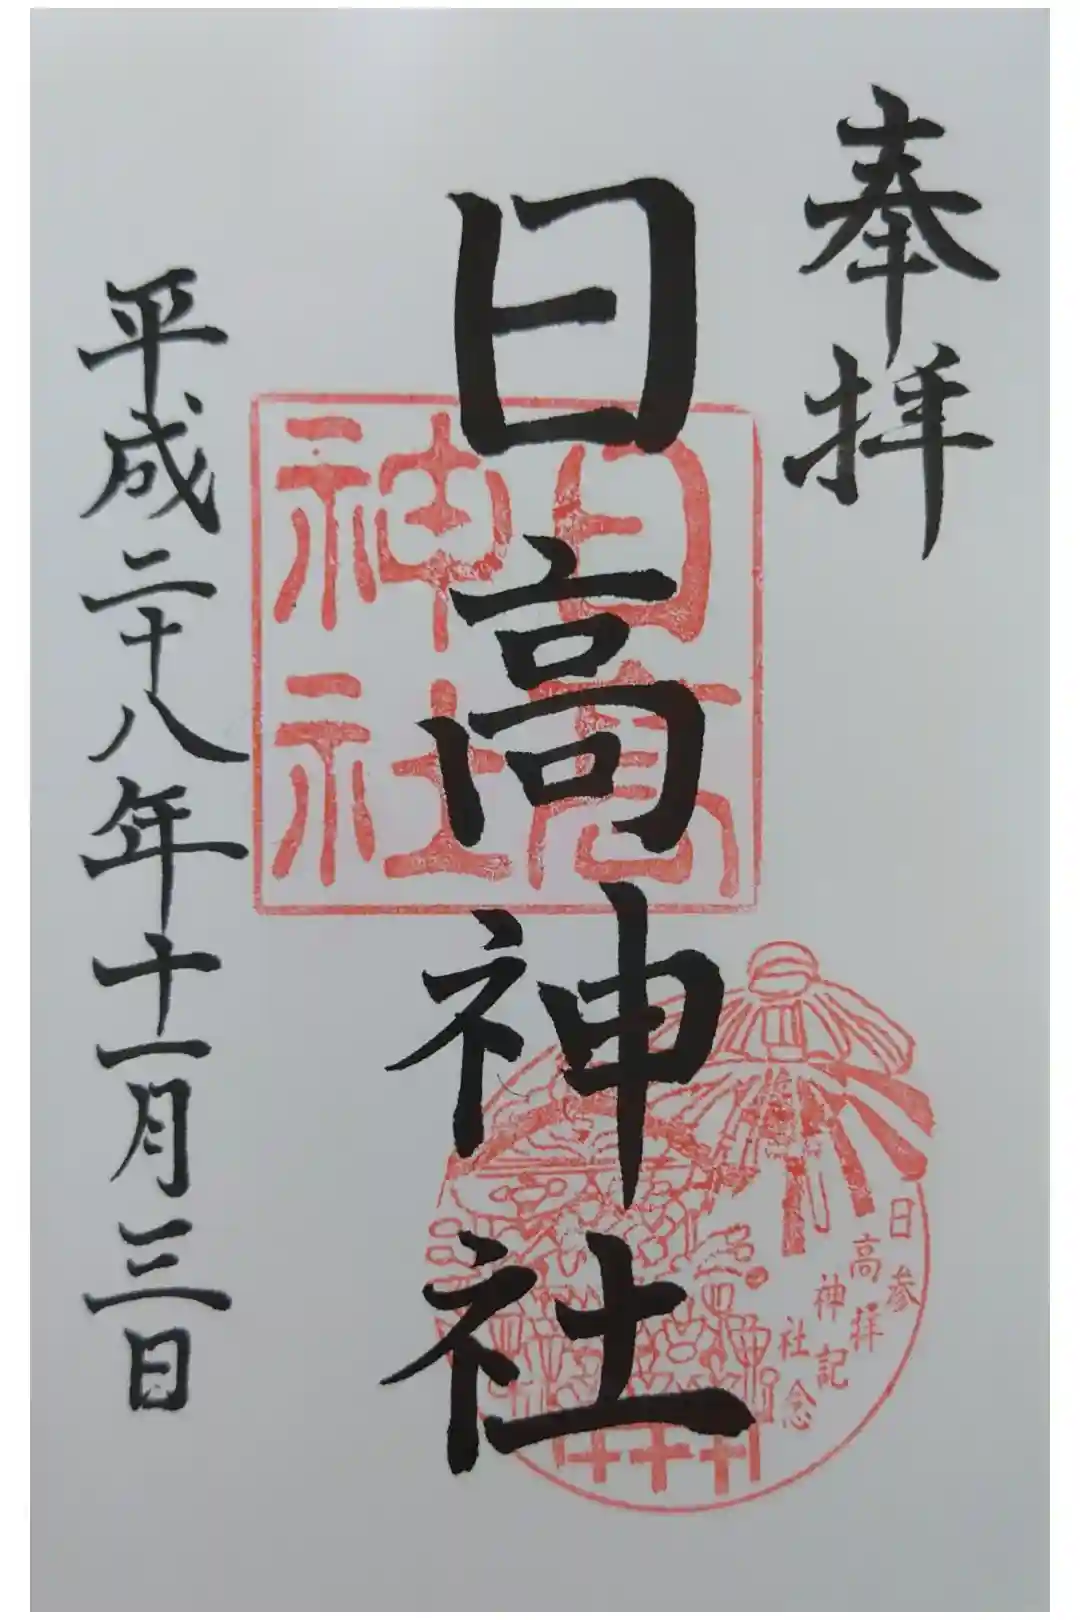 奉拝
日高神社
日高
神社
日高神社
参拝記念
平成二十八年十一月三日